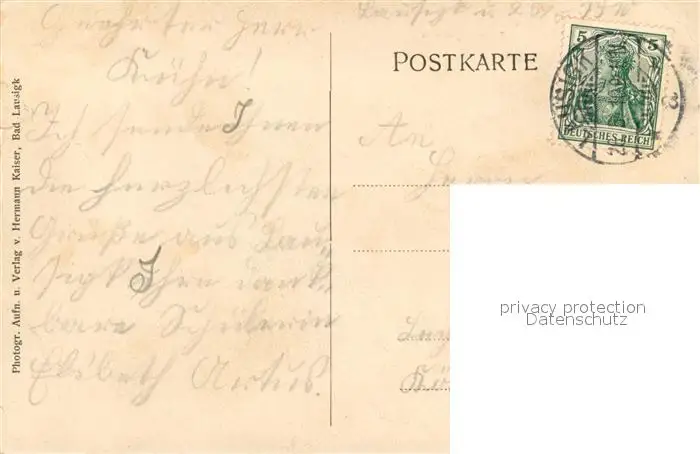 Geehrter Herr
Kühn!
Ich sende Ihnen
die herzlichsten
Grüße aus Lau-
sigk Ihre dank-
bare Schülerin
Elisabeth Artus.
Lausigk
POSTKARTE
5 5
DEUTSCHES REICH
An
Herrn
privacy protection
Datenschutz
Photogr. Aufn. u. Verlag v. Hermann Kaiser, Bad Lausigk